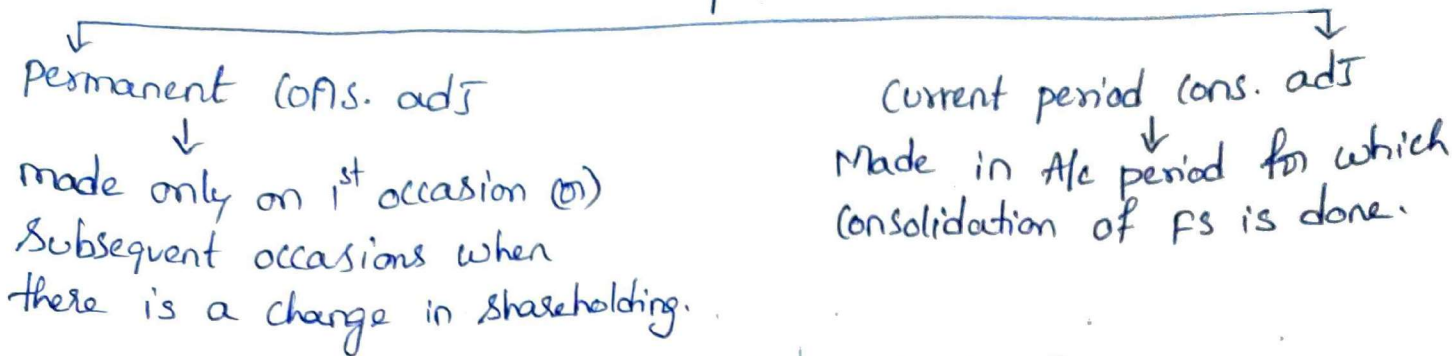 Permanent cons. adj
made only on 1st occasion (or)
Subsequent occasions when
there is a change in shareholding.
Current period cons. adj
Made in A/c period for which
Consolidation of FS is done.